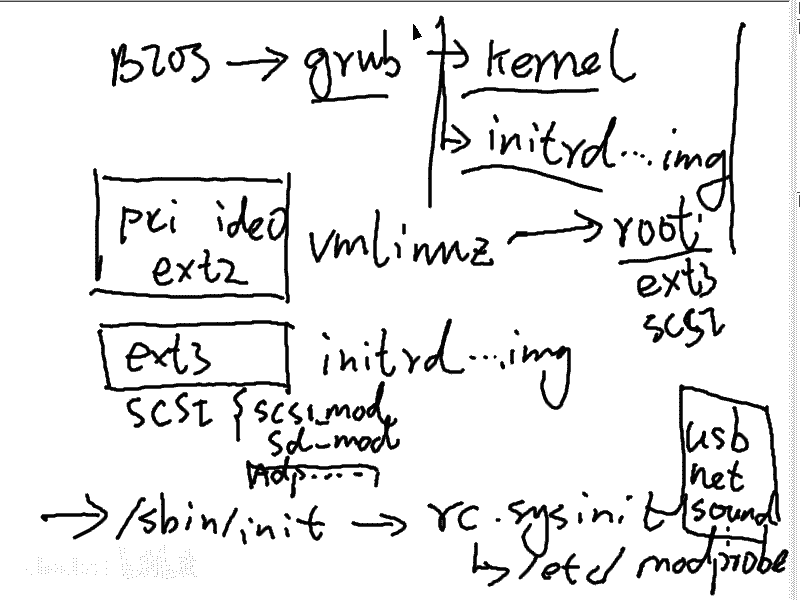 BIOS → grub → kernel
→ initrd...img
pci ide0
ext2
vmlinuz → root
ext3
scsi
ext3 initrd...img
SCSI { scsi_mod
sd_mod
usb
net
sound
→ /sbin/init → rc.sysinit
↳ /etc/ modprobe